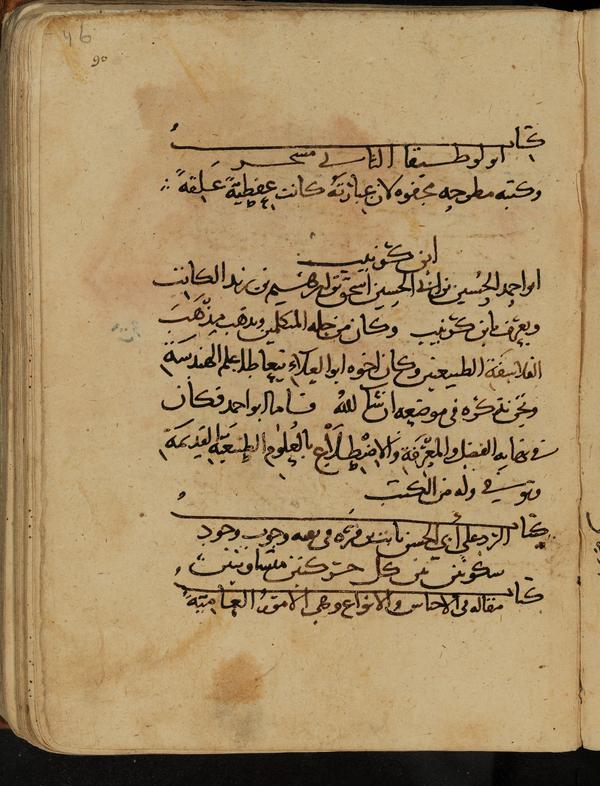 46
90
كتاب
انولوطيقا الثاني مفسر
وكتبه مطروحه مجفوه لان عبارته كانت عفطية غلقة
ابن كرنيب
ابو احمد الحسين بن ابي الحسين اسحق بن ابرهيم بن زيد الكاتب
ويعرف بابن كرنيب وكان من جله المتكلمين ويذهب مذهب
الفلاسفة الطبيعيين وكان اخوه ابو العلاء يتعاطا علم الهندسة
ونحن نذكره في موضعه ان شا الله فاما ابو احمد فكان
في نهاية الفضل والمعرفة والاضطلاع بالعلوم الطبيعية القديمة
وتوفي وله من الكتب
كتاب الرد على أبي الحسن ثابت بن قره في نفيه وجوب وجود
سكونين بين كل حركتين متساويتين
كتاب مقاله في الاجناس والانواع وهي الامور العامية